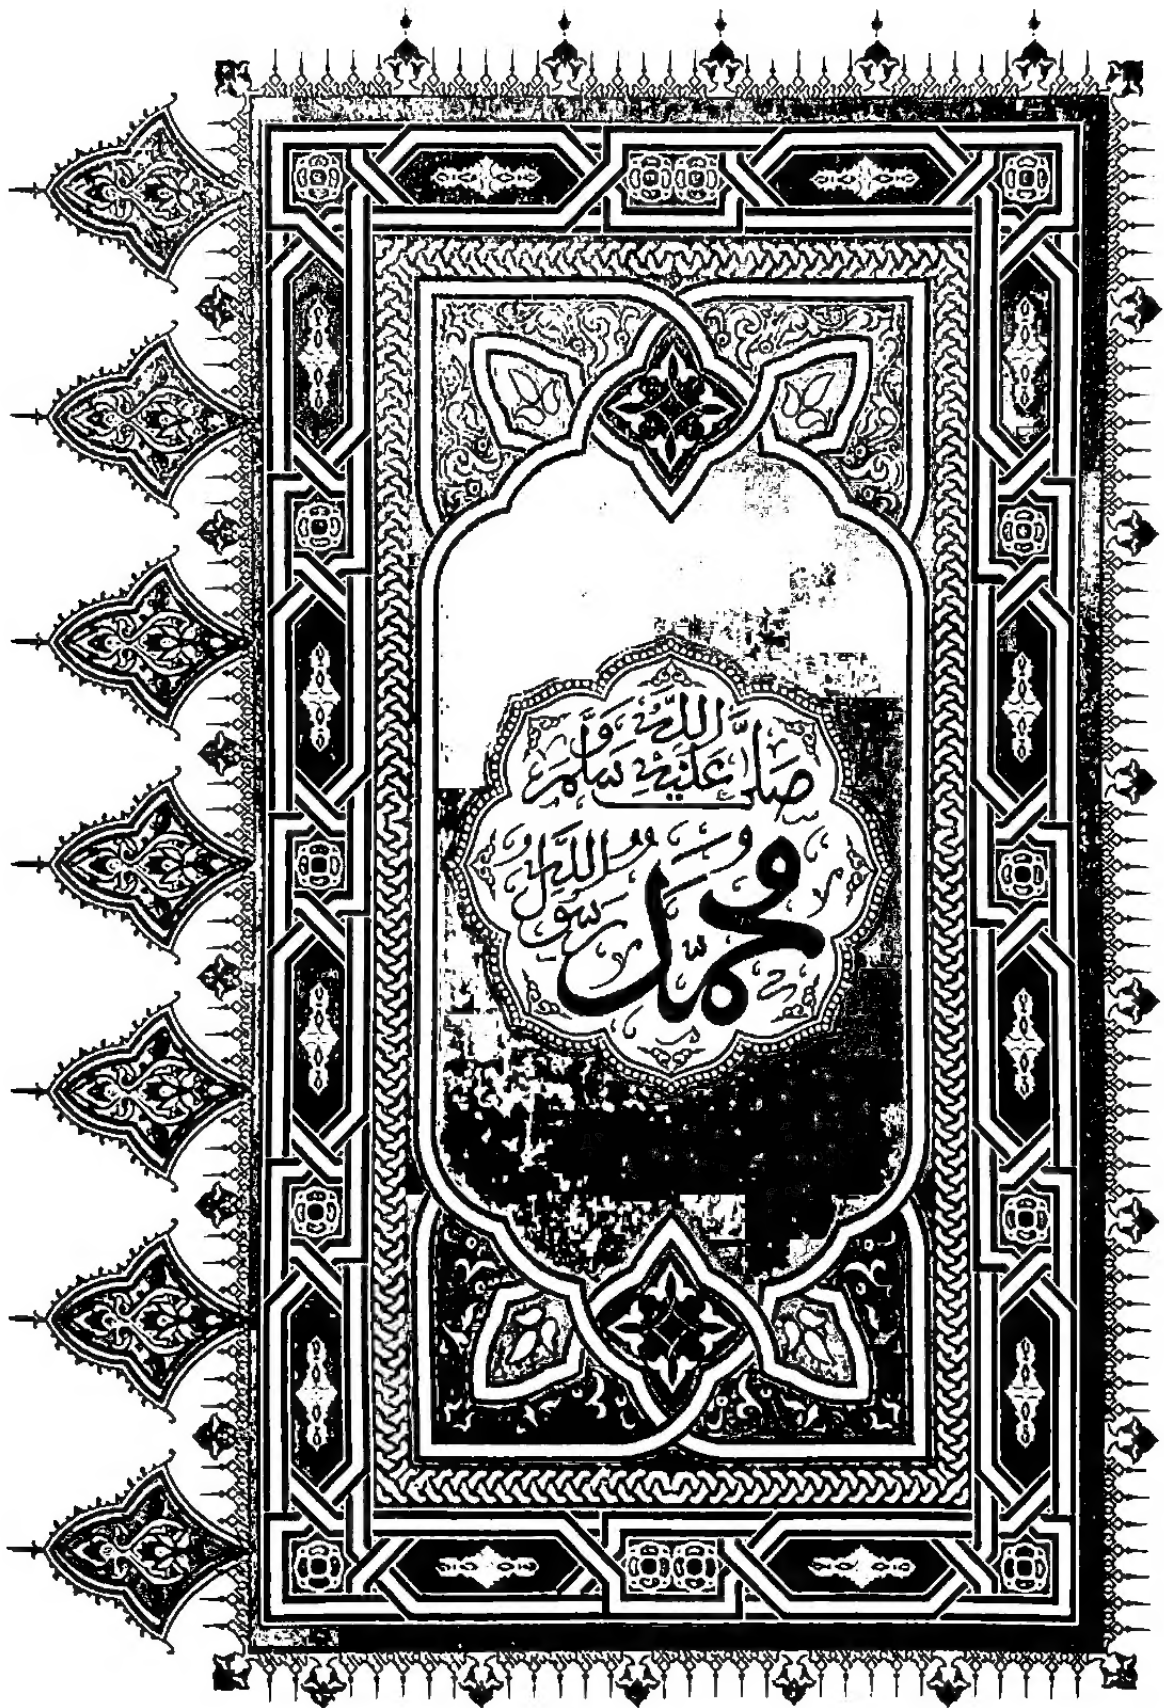 صَلَّى اللَّهُ عَلَيْهِ وَسَلَّمَ
مُحَمَّد
رَسُولُ اللَّه